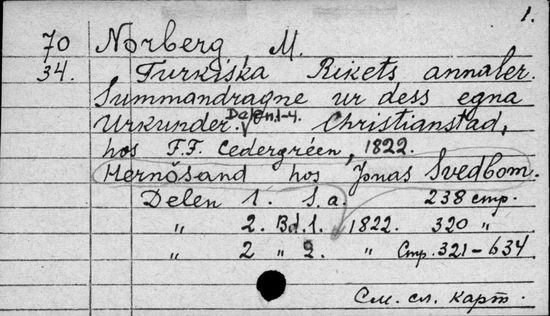 1.
70 Norberg, M.
34. Turkiska Rikets annaler.
Summandragne ur dess egna
Urkunder. Delen 1-4. Christianstad,
hos F.F. Cedergréen, 1822.
Hernösand hos Jonas Svedbom.
Delen 1. S.a. 238 стр.
" 2. Bd.1. 1822. 320 "
" 2 " 2. " Стр. 321-634
См. сл. карт.